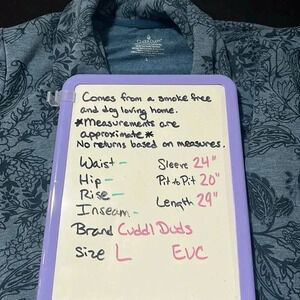 Cuddl Duds
Comes from a smoke free
and dog loving home.
*Measurements are
approximate*
No returns based on measures.
Waist - Sleeve 24"
Hip - Pit to Pit 20"
Rise - Length 29"
Inseam -
Brand Cuddl Duds
Size L EUC